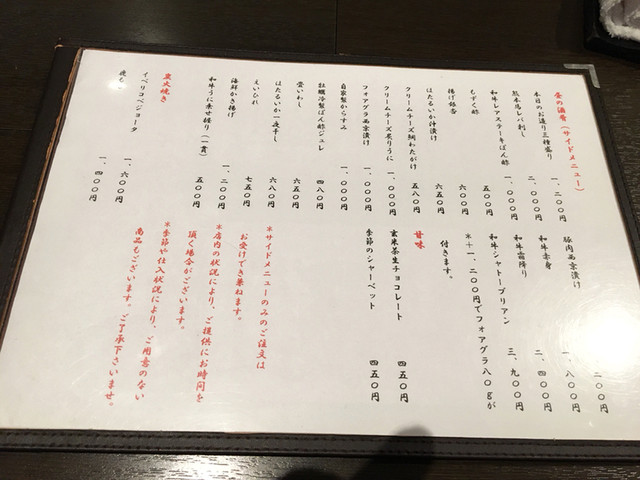 の酒肴(サイドメニュー)
本日のお造り三種盛り 一、二〇〇円
熊本馬レバ刺し 二、〇〇〇円
和牛レアステーキぽん酢 一、〇〇〇円
もずく酢 五〇〇円
揚げ銀杏 六〇〇円
ほたるいか沖漬け 六五〇円
クリームチーズ鯛わたがけ 五八〇円
クリームチーズ炙りうに 一、〇〇〇円
フォアグラ西京漬け 一、〇〇〇円
自家製からすみ 一、〇〇〇円
牡蠣冷製ぽん酢ジュレ 四八〇円
畳いわし 六五〇円
ほたるいか一夜干し 六八〇円
えいひれ 七五〇円
海鮮かき揚げ 一、二〇〇円
和牛うに乗せ握り(一貫) 五〇〇円
炭火焼き
イベリコベジョータ 一、六〇〇円
一、四〇〇円
豚肉西京漬け 二〇〇円
和牛赤身 一、八〇〇円
和牛霜降り 二、四〇〇円
和牛シャトーブリアン 三、九〇〇円
*十一、二〇〇円でフォアグラ八〇gが
付きます。
甘味
玄米茶生チョコレート 四五〇円
季節のシャーベット 四五〇円
*サイドメニューのみのご注文は
お受けでき兼ねます。
*店内の状況により、ご提供にお時間を
頂く場合がございます。
*季節や仕入状況により、ご用意のない
商品もございます。ご了承下さいませ。